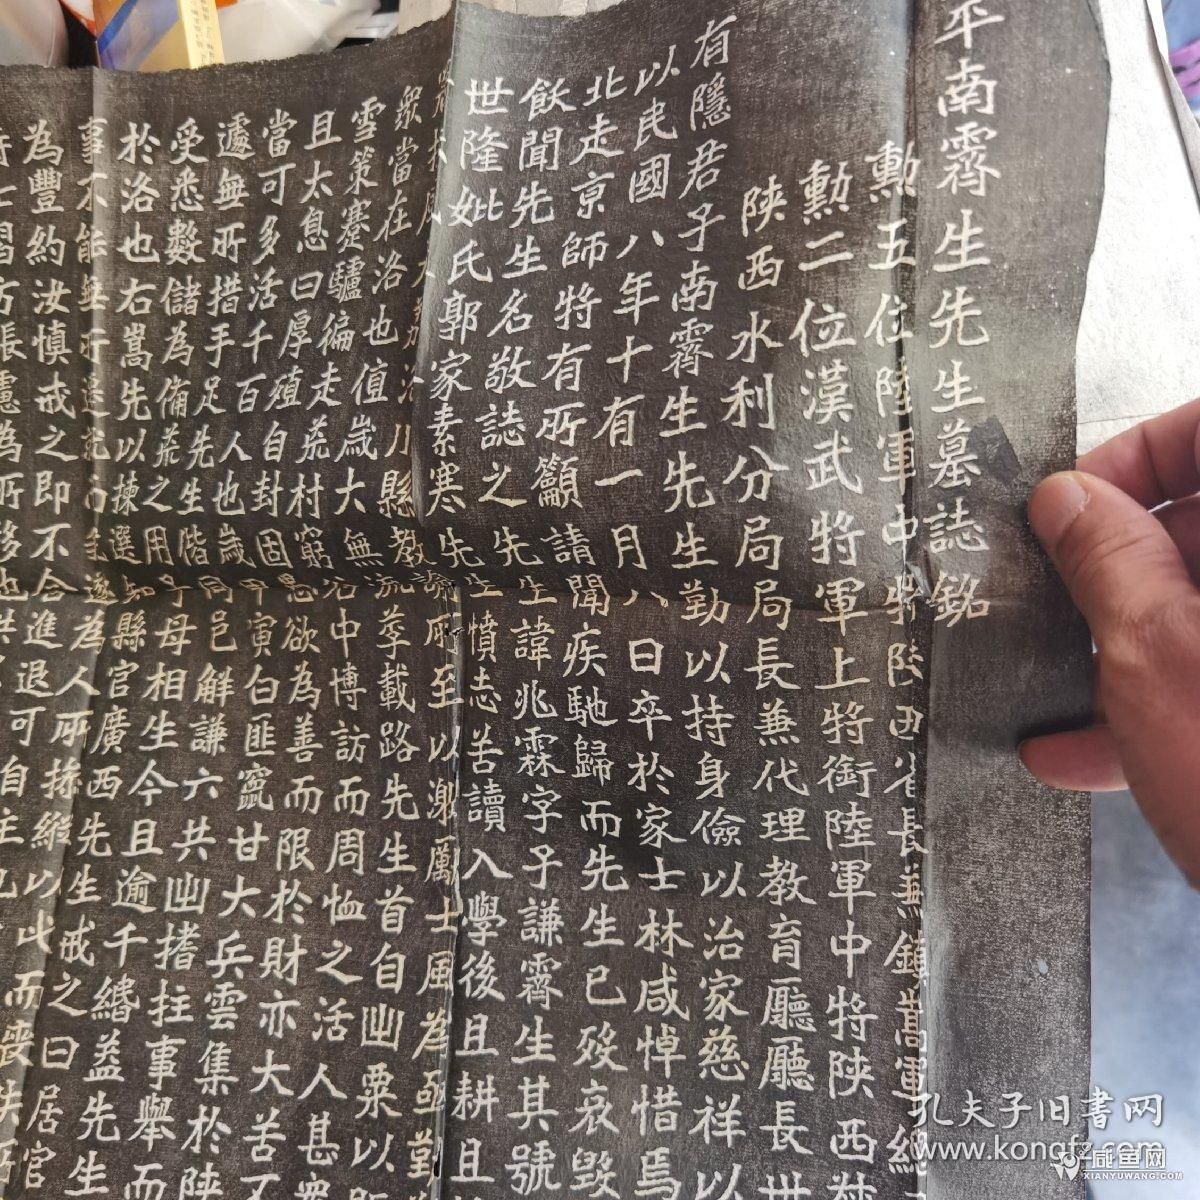 平南霽生先生墓誌銘
勳五位陸軍中將陝西省長兼鎮嵩軍總
勳二位漢武將軍上將銜陸軍中將陝西
陝西水利分局局長兼代理教育廳廳長世
有隱君子南霽生先生勤以持身儉以治家慈祥以
以民國八年十有一月八日卒於家士林咸悼惜焉
北走京師將有所籲請聞疾馳歸而先生已歿哀毀
飫聞先生名敬誌之先生諱兆霖字子謙霽生其號
世隆妣氏郭家素寒先生憤志苦讀入學後且耕且
洛川縣教諭所至以激厲士風為亟勤
眾當在洛也值歲大無流莩載路先生首自出粟以
雪策蹇驢徧走荒村窮谷中博訪而周恤之活人甚眾
且太息曰厚殖自封固愚欲為善而限於財亦大苦
當可多活千百人也歲甲寅白匪竄甘大兵雲集於陝
遽無所措手足先生偕同邑解謙六共出搘拄事舉而
受悉數儲為備荒之用子母相生今且逾千緡益先生
於洛也右嵩先以揀選知縣官廣西先生戒之曰居官
事不能無所遂為人所操縱以此而喪失
為豐約汝慎戒之即不合進退可自主
為所移
孔夫子旧书网
www.kongfz.com
咸鱼网
XIANYUWANG.COM